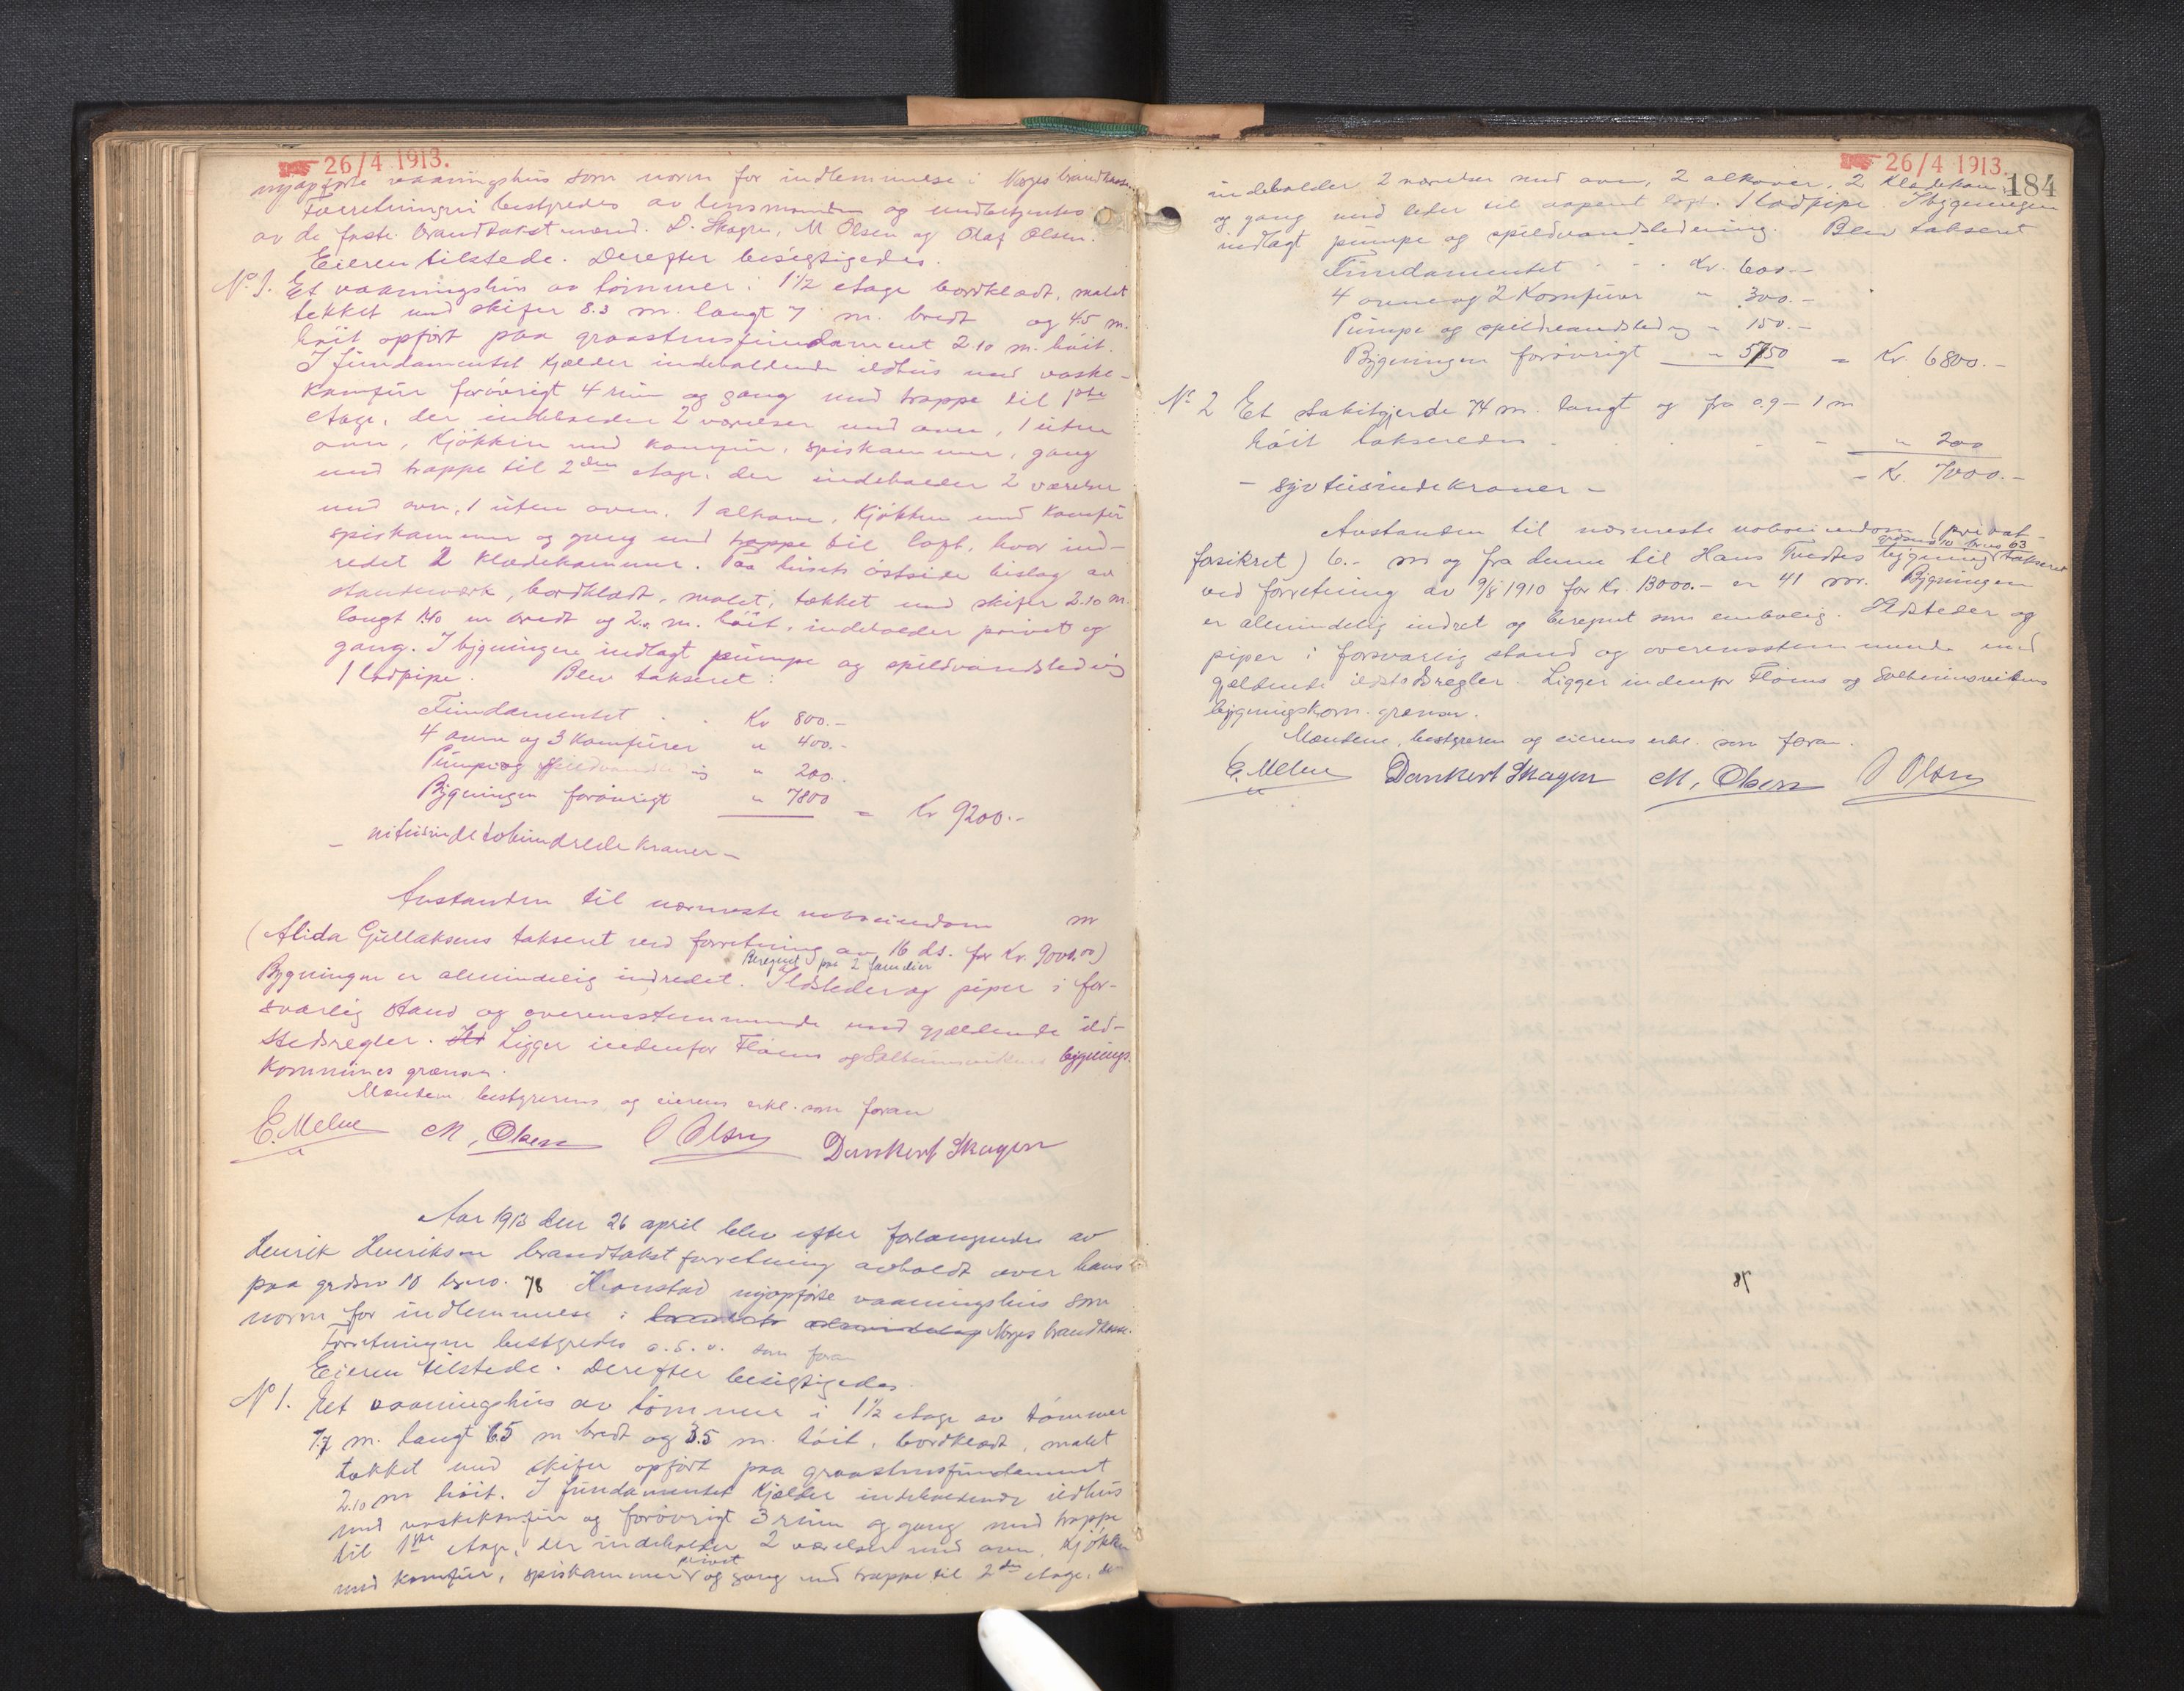 26/4 1913.
nyopførte vaaningshus som norm for indlemmelse i Norges brandkasse.
Forretningen bestyredes av lensmanden og undertegnedes
av de faste brandtakstmænd. D. Skagen, M Olsen og Olaf Olsen.
Eieren tilstede. Derefter besigtigedes.
No 1. Et vaaningshus av tømmer i 1 1/2 etage bordklædt, malet
tekket med skifer 8.3 m. langt 7 m. bredt og 4.5 m.
høit opført paa graastensfundament 2.10 m. høit.
I fundamentet kjælder indeholdende ildhus med vaske-
komfur forøvrigt 4 rum og gang med trappe til 1ste
etage, der indeholder 2 værelser med ovn, 1 uten
ovn, kjøkken med komfur, spiskammer, gang
med trappe til 2den etage, der indeholder 2 værelser
med ovn, 1 uten ovn, 1 alkove, kjøkken med komfur
spiskammer og gang med trappe til loft, hvor ind-
redet 2 klædekammer. Paa husets østside bislag av
standerverk, bordklædt, malet, tækket med skifer 2.10 m.
langt 1.40 m bredt og 2. m. høit, indeholder privet og
gang. I bygningen indlagt pumpe og spildvandsledning
1 lodpipe. Blev takseret:
Fundamentet . . Kr 800.-
4 ovne og 3 komfurer " 400.-
Pumpe og spildvandsledning " 200.-
Bygningen forøvrigt " 7800 = Kr 9200.-
- nitusindetohundrede kroner -
Avstanden til nærmeste naboeiendom m
(Alida Gullaksens takseret ved forretning av 16 ds. for Kr. 9000.00)
Beregnet paa 2 familier
Bygningen er almindelig indredet. Ildsteder og piper i for-
svarlig stand og overensstemmende med gjældende ild-
stedsregler. Ligger indenfor Fløens og Solheimsvikens bygnings-
kommunes grænser.
Mændenes, bestyrerens og eierens erkl. som foran
E. Melve M. Olsen O Olsen Dankert Skagen
Aar 1913 den 26 april blev efter forlangende av
Henrik Henriksen brandtakstforretning avholdt over hans
paa grdsno 10 brno. 78 Kronstad nyopførte vaaningshus som
norm for indlemmelse i Norges brandkasse.
Forretningen bestyredes o.s.v. som foran
Eieren tilstede. Derefter besigtigedes.
No 1. Et vaaningshus av tømmer i 1 1/2 etage av tømmer
7.7 m. langt 6.5 m bredt og 3.5 m. høit, bordklædt, malet
tækket med skifer opført paa graastensfundament
2.10 m høit. I fundamentet kjælder indeholdende ildhus
med vaskekomfur og forøvrigt 3 rum og gang med trappe
til 1ste etage, der indeholder 2 værelser med ovn, kjøkken
privet
med komfur, spiskammer og gang med trappe til 2den etage, der
26/4 1913.
184
indeholder 2 værelser med ovn, 2 alkover, 2 klædekam.
og gang med leder til aapent loft. 1 lodpipe. I bygningen
indlagt pumpe og spildvandsledning. Blev takseret
Fundamentet . . . Kr. 600.-
4 ovne og 2 komfurer " 300.-
Pumpe og spildvandsledng " 150.-
Bygningen forøvrigt " 5750 = Kr. 6800.-
No 2 Et stakitgjerde 74 m. langt og fra 0.9 - 1 m
høit takseredes . . . " 200
- syvtusindekroner - = Kr. 7000.-
Avstanden til nærmeste naboeiendom (privat-
grdsno 10 brno 63
forsikret) 6.- m og fra denne til Hans Tvedtes bygning takseret
ved forretning av 9/8 1910 for Kr. 13000.- er 41 m. Bygningen
er almindelig indret og beregnet som enbolig. Ildsteder og
piper i forsvarlig stand og overensstemmende med
gjældende ildstedsregler. Ligger indenfor Fløens og Solheimsvikens
bygningskom. grænser.
Mændene, bestyreren og eierens erkl. som foran.
E. Melve Dankert Skagen M. Olsen O Olsen
78